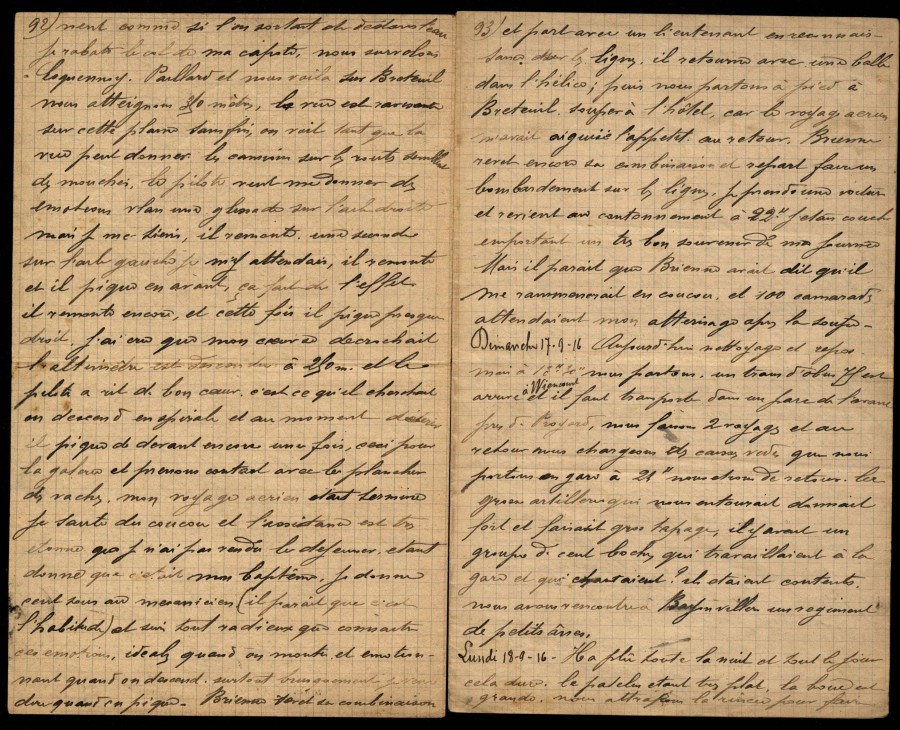 92/ ment comme si l'on sortait et
je rabats le col de ma capote, nous survolons
Paillard et nous voilà sur Breteuil
nous atteignons mètres, la vue est ravissante
sur cette plaine sans fin, on voit tant que la
vue peut donner. les camions sur les routes semblent
des mouches, le pilote veut me donner des
emotions vlan une glissade sur l'aile droite
mais je me tiens, il remonte. une seconde
sur l'aile gauche je m'y attendais, il remonte
et il pique en avant, ça fait de l'effet
il remonte encore, et cette fois il pique presque
droit, j'ai cru que mon cœur se decrochait
l'altimètre est descendu à 250 m. et le
pilote a rit de bon cœur. c'est ce qu'il cherchait
on descend en spirale et au moment
il pique de devant encore une fois, ceci pour
la galerie et prenons contact avec le plancher
des vaches, mon voyage aerien etant terminé
je saute du coucou et l'assistance est très
etonné que je n'ai pas rendu le dejeuner, etant
donné que c'était mon baptême, je donne
cent sous au mecanicien (il parait que c'est
l'habitude) et suis tout radieux que connaitre
ces emotions, ideales quand on monte et emotion-
nant quand on descend. surtout
quand on pique. Brienne sa combinaison
93/ et part avec un lieutenant en reconnais-
sance sur les lignes. il retourne avec une balle
dans l'hélice; puis nous partons à pied à
Breteuil. souper à l'hôtel, car le voyage aerien
m'avait aiguisé l'appetit. au retour. Brienne
revet encore sa combinaison et repart faire un
bombardement sur les lignes, je prends une voiture
et revient au cantonnement à 22h j'etais couché
emportant un très bon souvenir de ma journée
Mais il parait que Brienne avait dit qu'il
me rammenerait en coucou, et 100 camarades
attendaient mon atterisage apres la soupe -
Dimanche 17-9-16 Aujourd'hui nettoyage et repos
mais à nous partons. un train d'obus 75 est
à Wiencourt
arrivé et il faut transporter dans un parc de l'avant
pres de Proyart, nous faisons 2 voyages et au
retour nous chargeons des caisses vides que nous
portons en gare à 21h nous etions de retour. la
grosse artillerie qui nous entourait donnait
fort et faisait gros tapage, il y avait un
groupe de cent boches qui travaillaient à la
gare et qui chantaient? ils etaient contents.
nous avons rencontré à Bayonviller un regiment
de petits ânes,
Lundi 18-9-16 - Il a plû toute la nuit et tout le jour
cela dure. le patelin etant très plat, la boue est
grande. nous attrapons la rincée pour faire